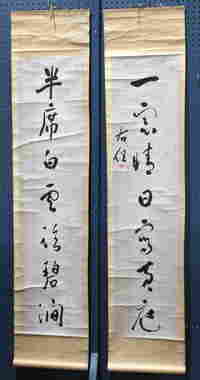 一窗晴日寫黃庭
右任
半席白雲碧澗